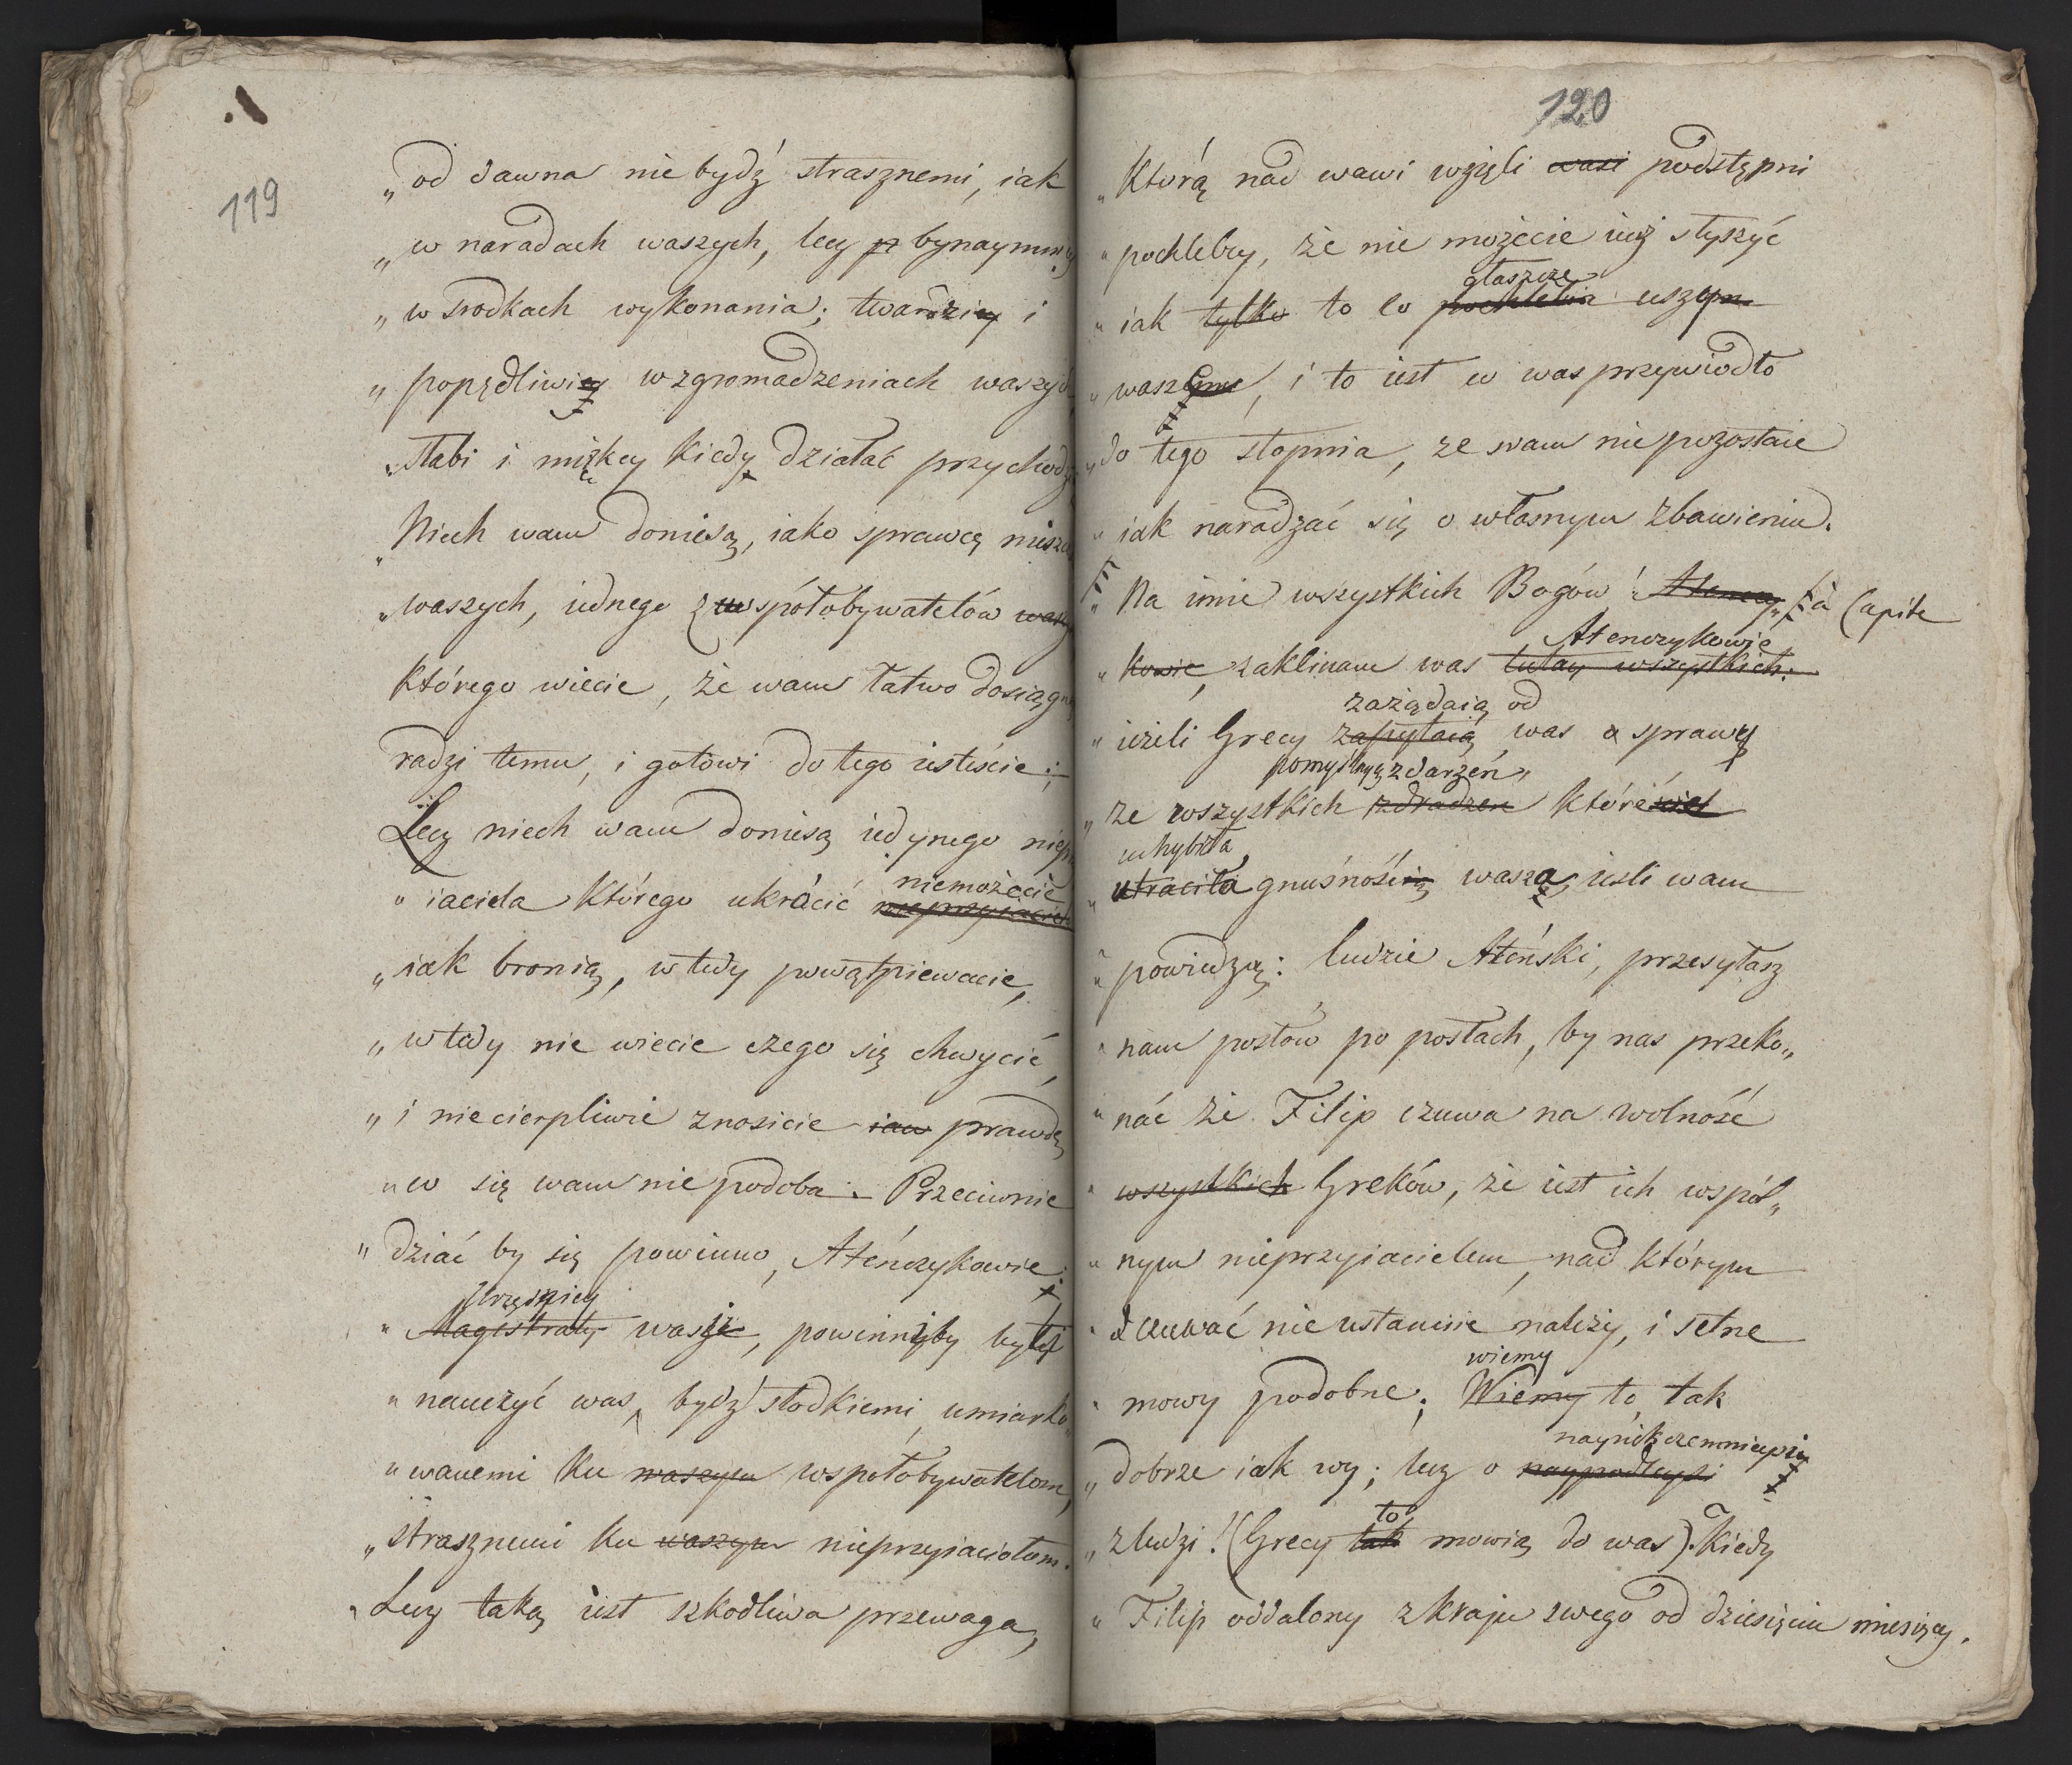 119
„od dawna nie bydź strasznemi, iak
„w naradach waszych, lecz bynaymniey
„w srodkach wykonania; twardzi i
„popędliwi w zgromadzeniach waszych
„słabi i miękcy kiedy działać przychodzi
„Niech wam doniesą, iako sprawcę
„waszych, iednego z współobywatelów
którego wiecie, że wam łatwo dosiągnąć
radzi temu, i gotowi do tego iesteście;
Lecz niech wam doniesą iedynego
niemożecie
„iaciela którego ukrócić nieprzyjaciela
„iak bronią, wtedy powątpiewacie,
„wtedy nie wiecie czego się chwycić,
„i niecierpliwie znosicie prawdę
„co się wam nie podoba. Przeciwnie
„dziać by się powinno, Ateńczykowie:
Urzędnicy
„Magistraty waszi, powinniby byli
„nauczyć was, bydź słodkiemi, umiarko„
„wanemi ku waszym wspołobywatelom,
„strasznemi ku waszym nieprzyiaciołom.
„Lecz taką iest szkodliwa przewaga,
120
„którą nad wami wzięli wasi podstępni
„pochlebcy, że nie możecie iuż słyszyć
głaszcze
„iak tylko to co pochlebia uszym
„waszemu, i to iest co was przywiodło
„do tego stopnia, że wam nie pozostaie
„iak naradzać się o własnym zbawieniu.
„Na imie wszystkich Bogów! Atenczy„ à Capite
Atenczykowie
„kowie, zaklinam was tutay wszystkich:
zażądaią od
„ieżeli Grecy zapytaią was o sprawy
pomyślnych zdarzeń„
„ze wszystkich zdradzen któreście
uchybiła
„utraciła gnuśnością waszą, iesli wam
„powiedzą: ludzie Ateński, przesyłasz
„nam posłów po posłach, by nas przeko„
„nać że Filip czuwa na wolność
„wszystkich Greków, że iest ich wspól„
„nym nieprzyiacielem, nad którym
„czuwać nieustannie należy, i setne
wiemy
„mowy podobne; Wiemy to, tak
naynikczemnieysi
„dobrze iak wy; lecz o naypodleysi
to
„z ludzi! (Grecy tak mowią do was). Kiedy
„Filip oddalony z kraju swego od dziesięciu miesięcy.